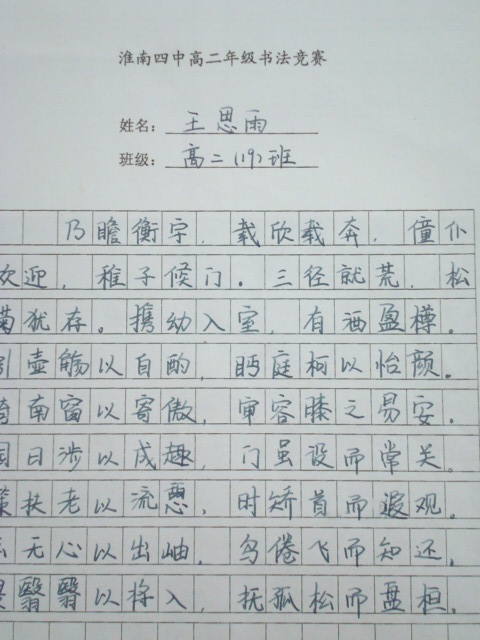 淮南四中高二年级书法竞赛
姓名：王思雨
班级：高二（19）班
乃瞻衡宇，载欣载奔，僮仆
欢迎，稚子候门。三径就荒，松
菊犹存。携幼入室，有酒盈樽。
引壶觞以自酌，眄庭柯以怡颜。
倚南窗以寄傲，审容膝之易安。
园日涉以成趣，门虽设而常关。
策扶老以流憩，时矫首而遐观。
云无心以出岫，鸟倦飞而知还，
景翳翳以将入，抚孤松而盘桓。